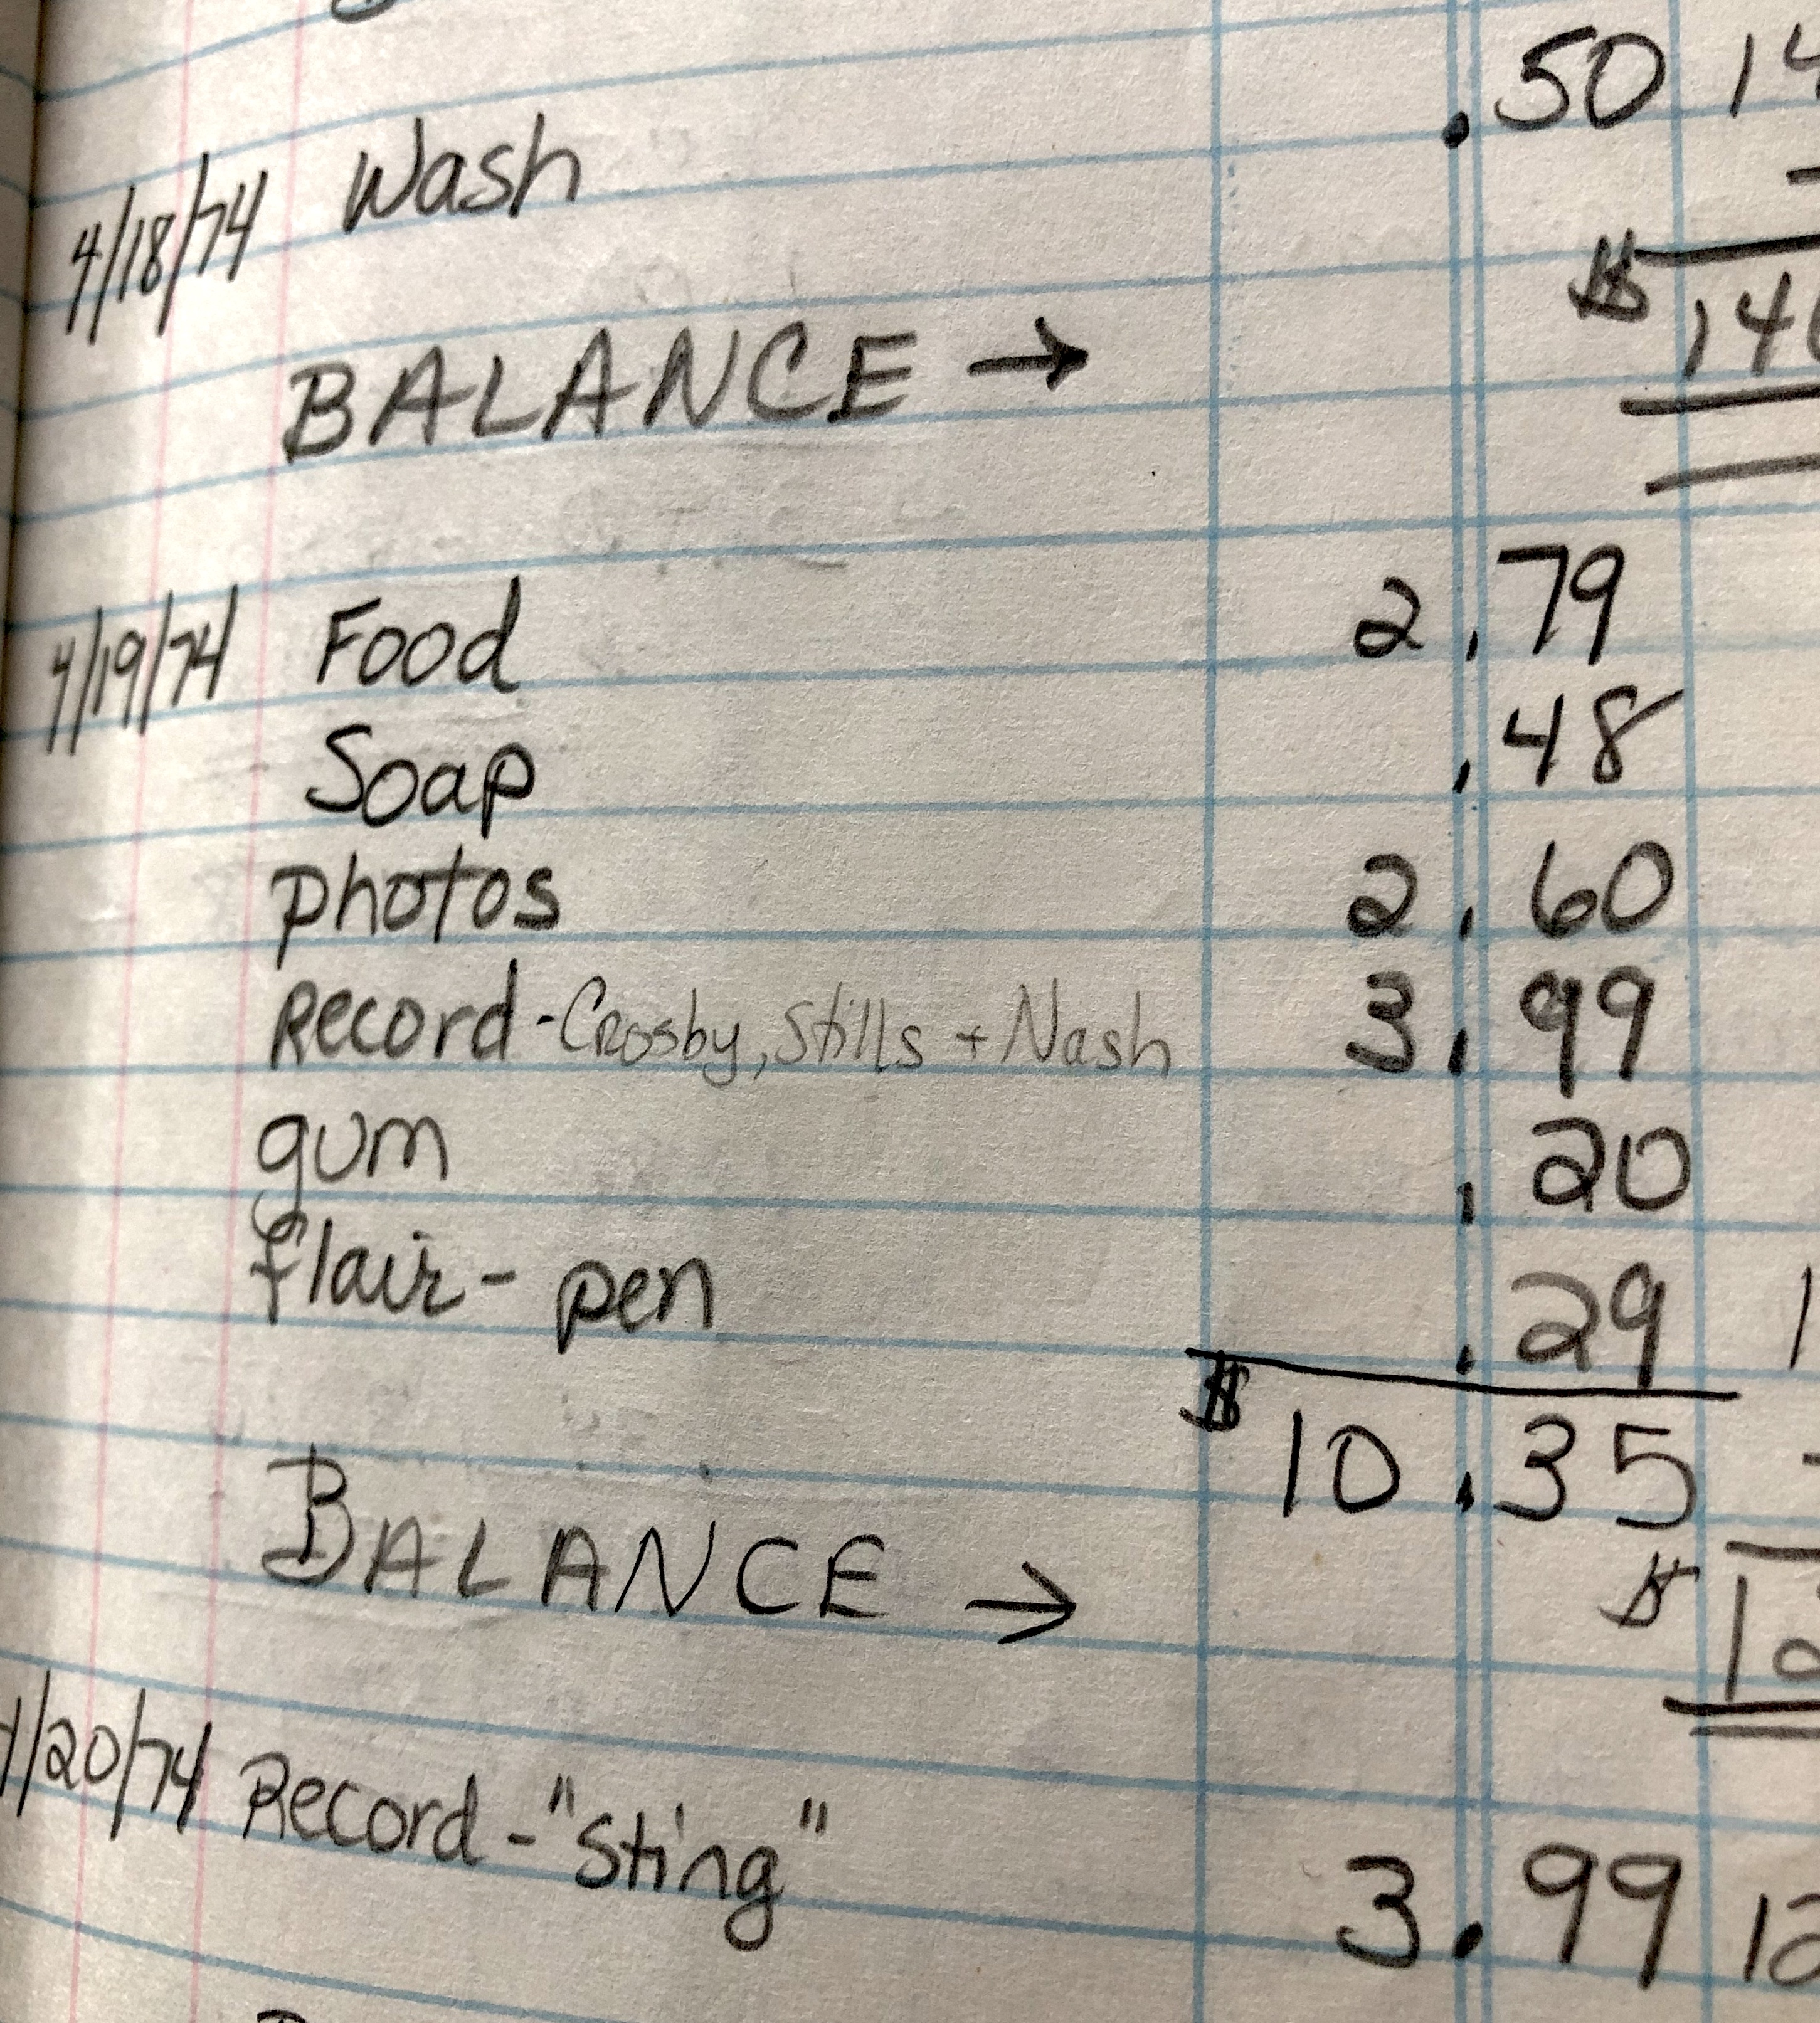 4/18/74 Wash .50 14
BALANCE → $ 14
4/19/74 Food 2.79
Soap .48
photos 2.60
Record - Crosby, Stills + Nash 3.99
gum .20
flair - pen .29 1
$ 10.35
BALANCE → $ 12
/20/74 Record - "Sting" 3.99 12